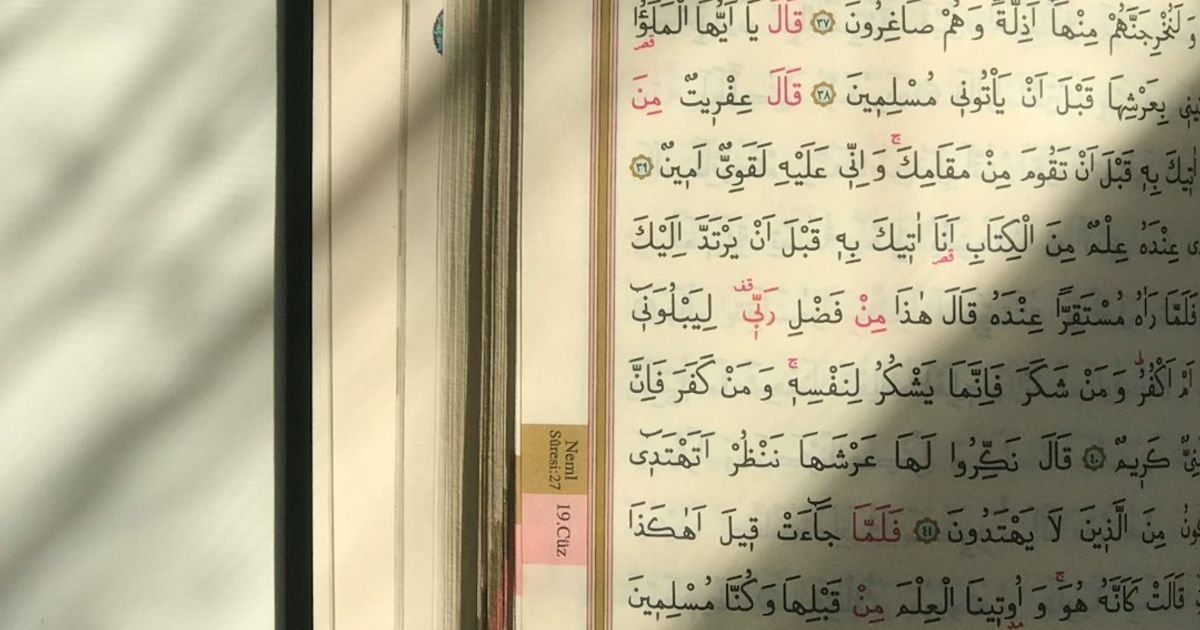 وَلَنُخْرِجَنَّهُمْ مِنْهَٓا اَذِلَّةً وَهُمْ صَاغِرُونَ ﴿٣٧﴾ قَالَ يَٓا اَيُّهَا الْمَلَؤُ۬ا
قصر
بِعَرْشِهَا قَبْلَ اَنْ يَأْتُونٖى مُسْلِمٖينَ ﴿٣٨﴾ قَالَ عِفْرٖيتٌ مِنَ
اٰتٖيكَ بِهٖ قَبْلَ اَنْ تَقُومَ مِنْ مَقَامِكَۚ وَاِنّٖى عَلَيْهِ لَقَوِىٌّ اَمٖينٌ ﴿٣٩﴾
عِنْدَهُ عِلْمٌ مِنَ الْكِتَابِ اَنَا اٰتٖيكَ بِهٖ قَبْلَ اَنْ يَرْتَدَّ اِلَيْكَ
قصر
فَلَمَّا رَاٰهُ مُسْتَقِرًّا عِنْدَهُ قَالَ هٰذَا مِنْ فَضْلِ رَبّٖىࣞ لِيَبْلُوَنٖٓى
اَمْ اَكْفُرُؕ وَمَنْ شَكَرَ فَاِنَّمَا يَشْكُرُ لِنَفْسِهٖۚ وَمَنْ كَفَرَ فَاِنَّ
كَرٖيمٌ ﴿٤٠﴾ قَالَ نَكِّرُوا لَهَا عَرْشَهَا نَنْظُرْ اَتَهْتَدٖٓى
مِنَ الَّذٖينَ لَا يَهْتَدُونَ ﴿٤١﴾ فَلَمَّا جَٓاءَتْ قٖيلَ اَهٰكَذَا
قَالَتْ كَاَنَّهُ هُوَۚ وَاُوتٖينَا الْعِلْمَ مِنْ قَبْلِهَا وَكُنَّا مُسْلِمٖينَ
Neml
Sûresi:27
19.Cüz